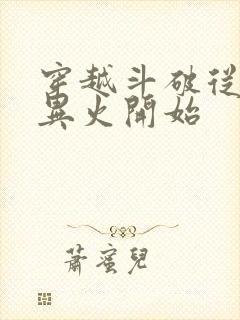 穿越斗破從
異火開始
蕭蜜兒